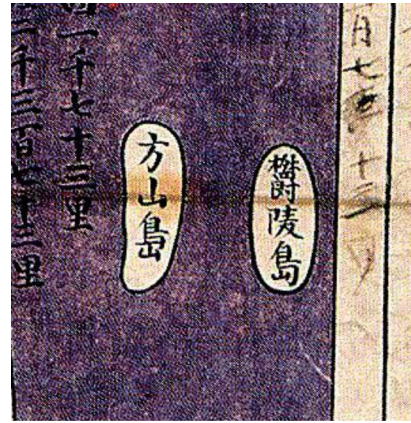 欝陵島
方山島
一千七十三里
千三百七十三里